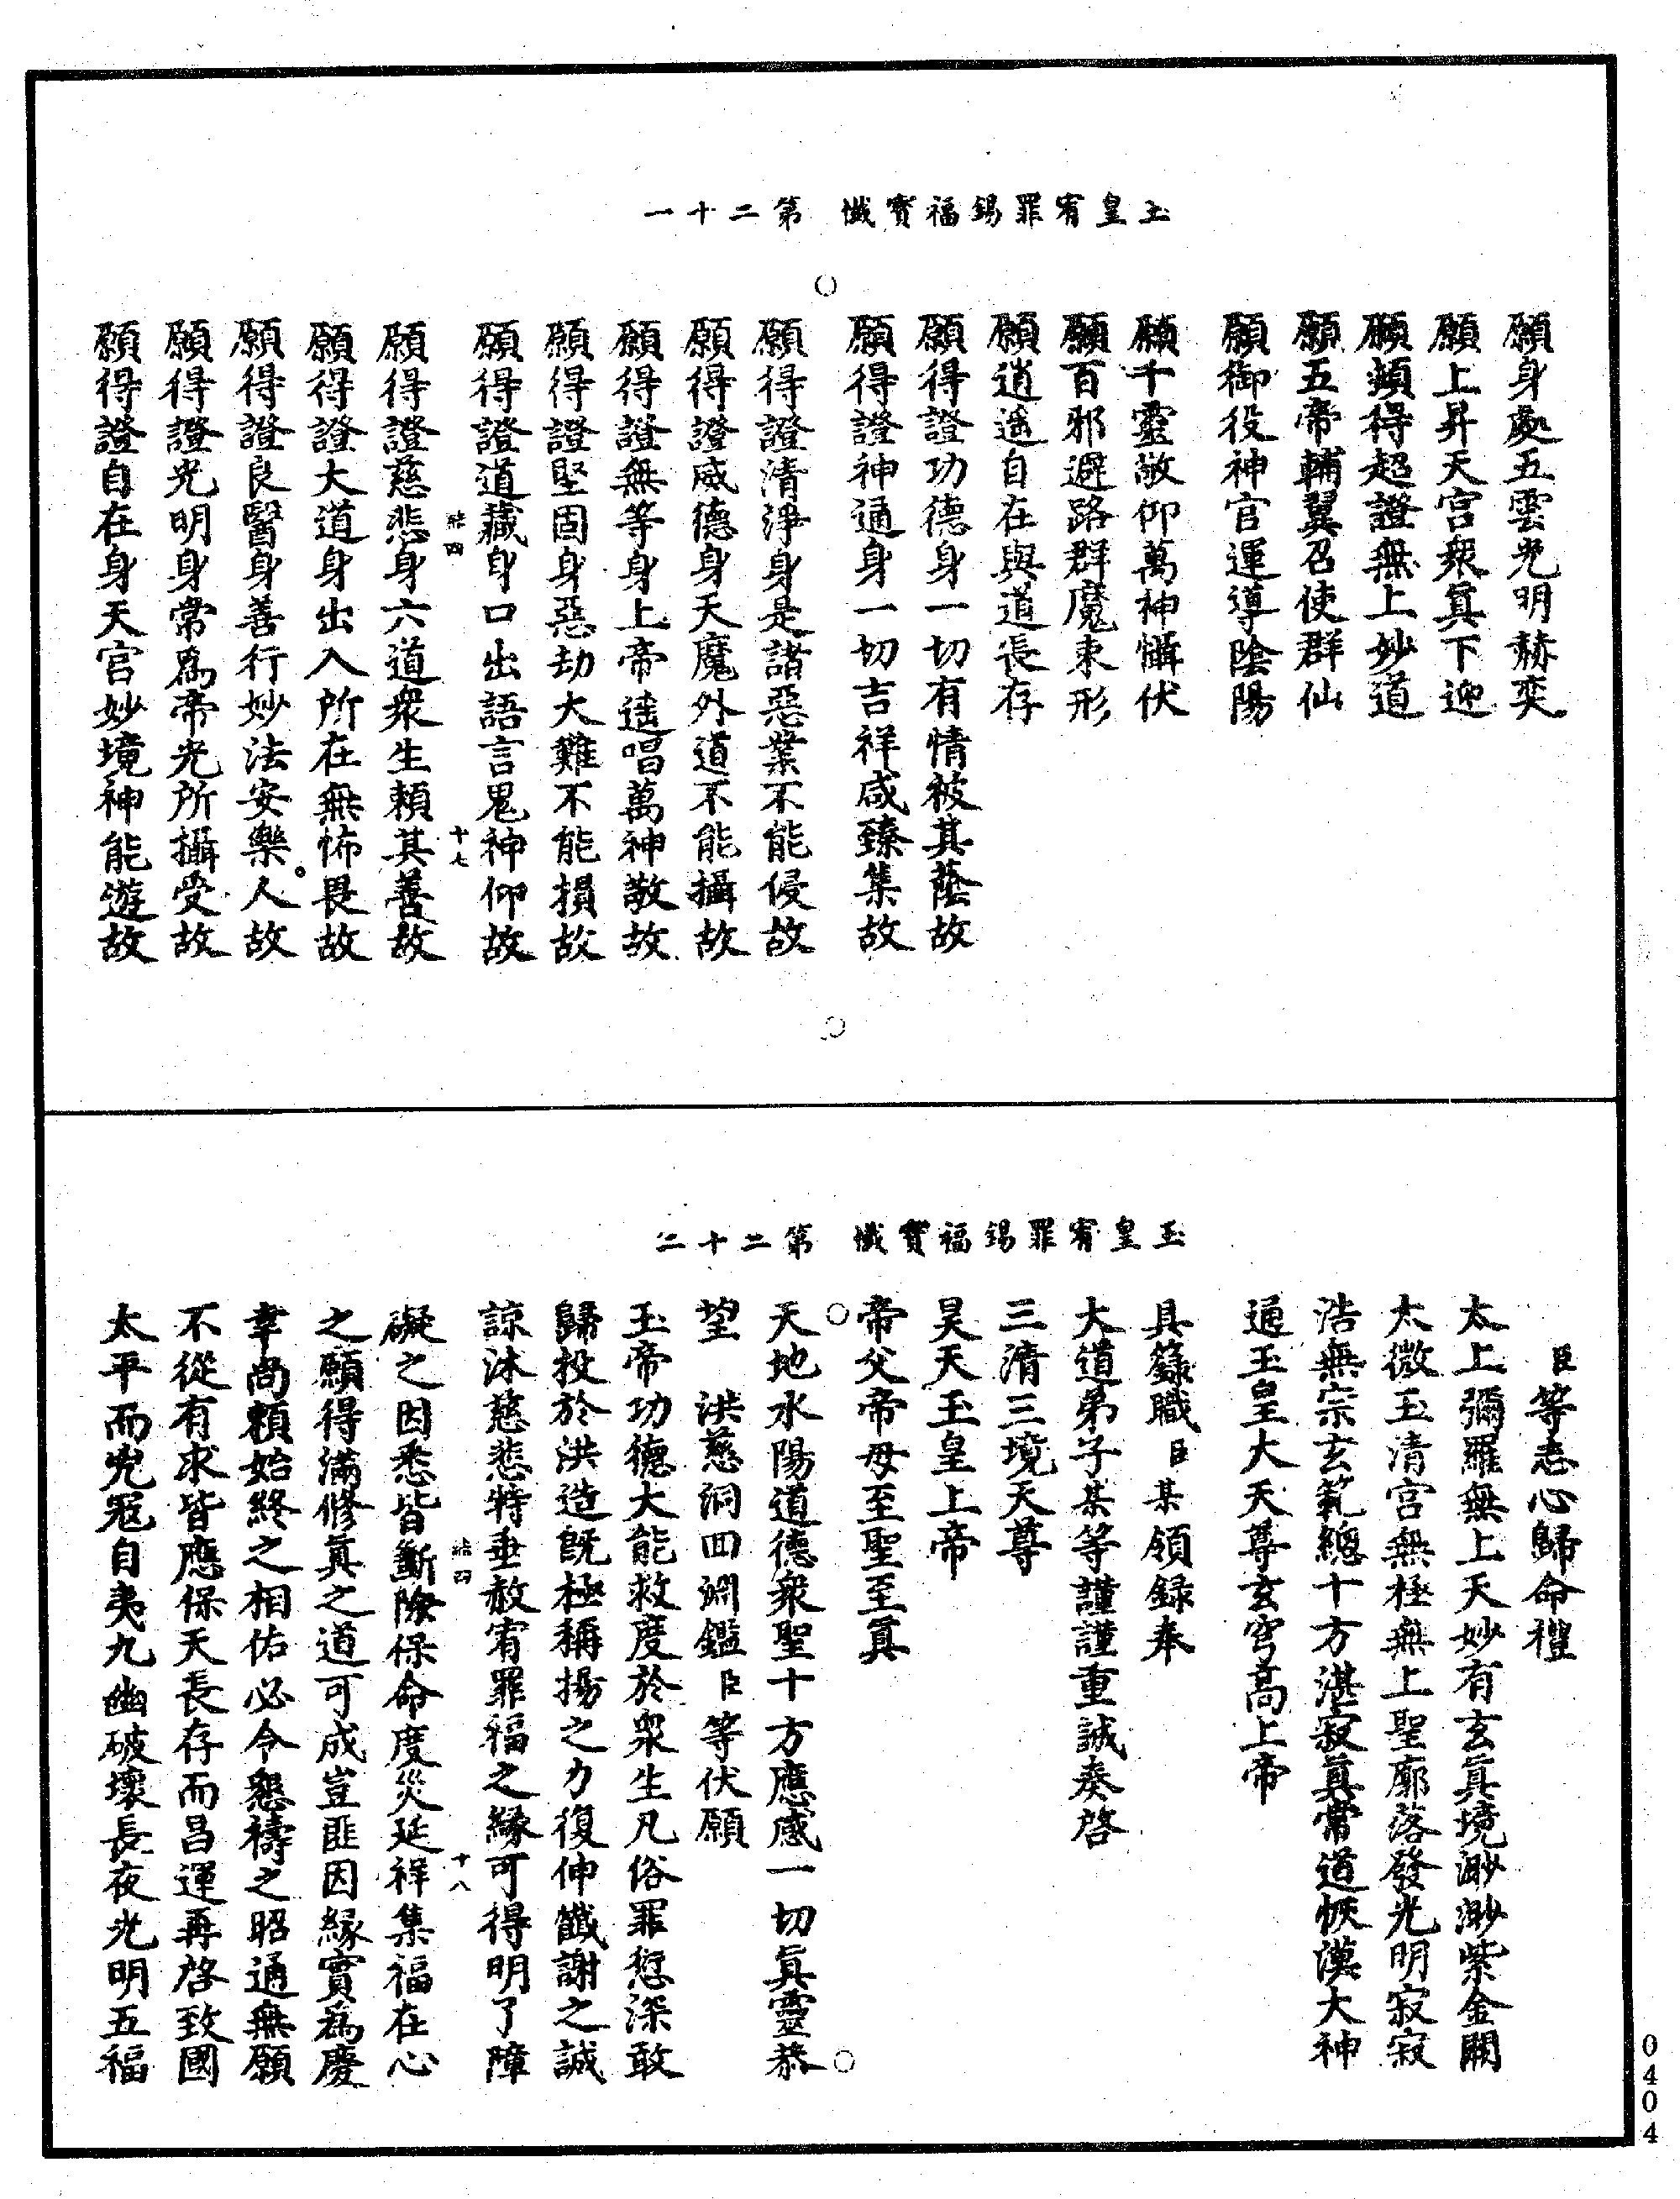 玉皇宥罪錫福寶懺 第二十一
願身處五雲光明赫奕
願上昇天宫衆眞下迎
願頻得超證無上妙道
願五帝輔翼召使群仙
願御役神官運導陰陽
願千靈敬仰萬神懾伏
願百邪避路群魔束形
願逍遥自在與道長存
願得證功德身一切有情被其蔭故
願得證神通身一切吉祥咸臻集故
願得證清淨身是諸惡業不能侵故
願得證威德身天魔外道不能攝故
願得證無等身上帝遥唱萬神敬故
願得證堅固身惡劫大難不能損故
願得證道藏身口出語言鬼神仰故
四 十七
願得證慈悲身六道衆生賴其善故
願得證大道身出入所在無怖畏故
願得證良醫身善行妙法安樂人故
願得證光明身常爲帝光所攝受故
願得證自在身天宫妙境神能遊故
玉皇宥罪錫福寶懺 第二十二
臣等志心歸命禮
太上彌羅無上天妙有玄眞境渺渺紫金闕
太微玉清宫無極無上聖廓落發光明寂寂
浩無宗玄範總十方湛寂眞常道恢漠大神
通玉皇大天尊玄穹高上帝
具籙職臣某領録奉
大道弟子某等謹謹重誠奏啓
三清三境天尊
昊天玉皇上帝
帝父帝母至聖至眞
天地水陽道德衆聖十方應感一切眞靈恭
望 洪慈洞回淵鑑臣等伏願
玉帝功德大能救度於衆生凡俗罪愆深敢
歸投於洪造既極稱揚之力復伸懺謝之誠
諒沐慈悲特垂赦宥罪福之縁可得明了障
四 十八
礙之因悉皆斷除保命度災延祥集福在心
之願得滿修眞之道可成豈匪因縁實爲慶
幸尚賴始終之相佑必令懇禱之昭通無願
不從有求皆應保天長存而昌運再啓致國
太平而兇冦自夷九幽破壞長夜光明五福
0404